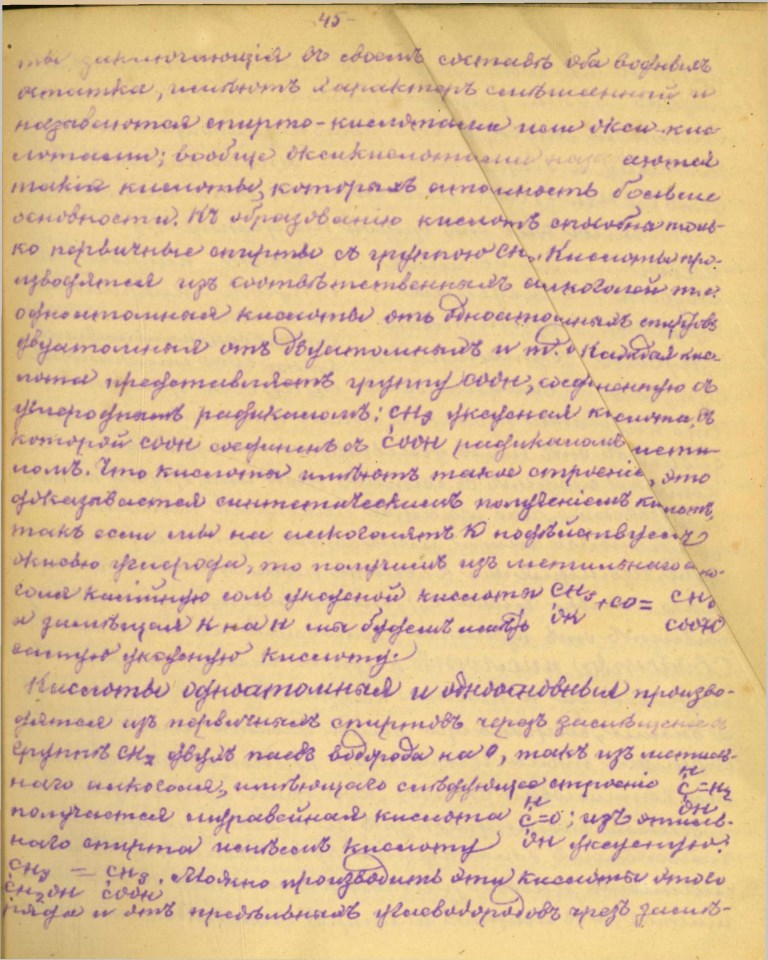 45-
ты заключающія въ своемъ составѣ оба водныхъ
остатка, имѣютъ характеръ смѣшанный и
называются спирто-кислотами или окси-кис-
лотами; вообще оксикислотами наз аются
такія кислоты, которыхъ атомность больше
основности. Къ образованію кислотъ способны толь-
ко первичные спирты съ группою CH₂. Кислоты про-
изводятся изъ соотвѣтственныхъ алкоголей т.е.
одноатомныя кислоты отъ одноатомныхъ спиртовъ
двуатомныя отъ двуатомныхъ и т.д. Каждая кис-
лота представляетъ группу COOH, соединенную съ
углероднымъ радикаломъ: CH₃ уксусная кислота, въ
которой COOH соединенъ съ COOH радикаломъ мети-
ломъ. Что кислоты имѣютъ такое строеніе, это
доказывается синтетическимъ полученіемъ кислотъ,
такъ если мы на алкоголятъ K подѣйствуемъ
окисью углерода, то получимъ изъ метильнаго алко-
голя калійную соль уксусной кислоты CH₃ + CO = CH₃
а замѣщая K на H мы будемъ имѣть OK COOK
самую уксусную кислоту.
Кислоты одноатомныя и одноосновныя произво-
дятся изъ первичныхъ спиртовъ черезъ замѣщеніе въ
группѣ CH₂ двухъ паевъ водорода на O, такъ изъ метиль-
наго алкоголя, имѣющаго слѣдующее строеніе H C=H₂ OH
получается муравейная кислота H C=O OH; изъ этиль-
наго спирта имѣемъ кислоту уксусную:
CH₃ CH₂OH = CH₃ COOH. Можно производить эту кислоты этого
ряда и отъ предѣльныхъ углеводородовъ чрезъ замѣ-